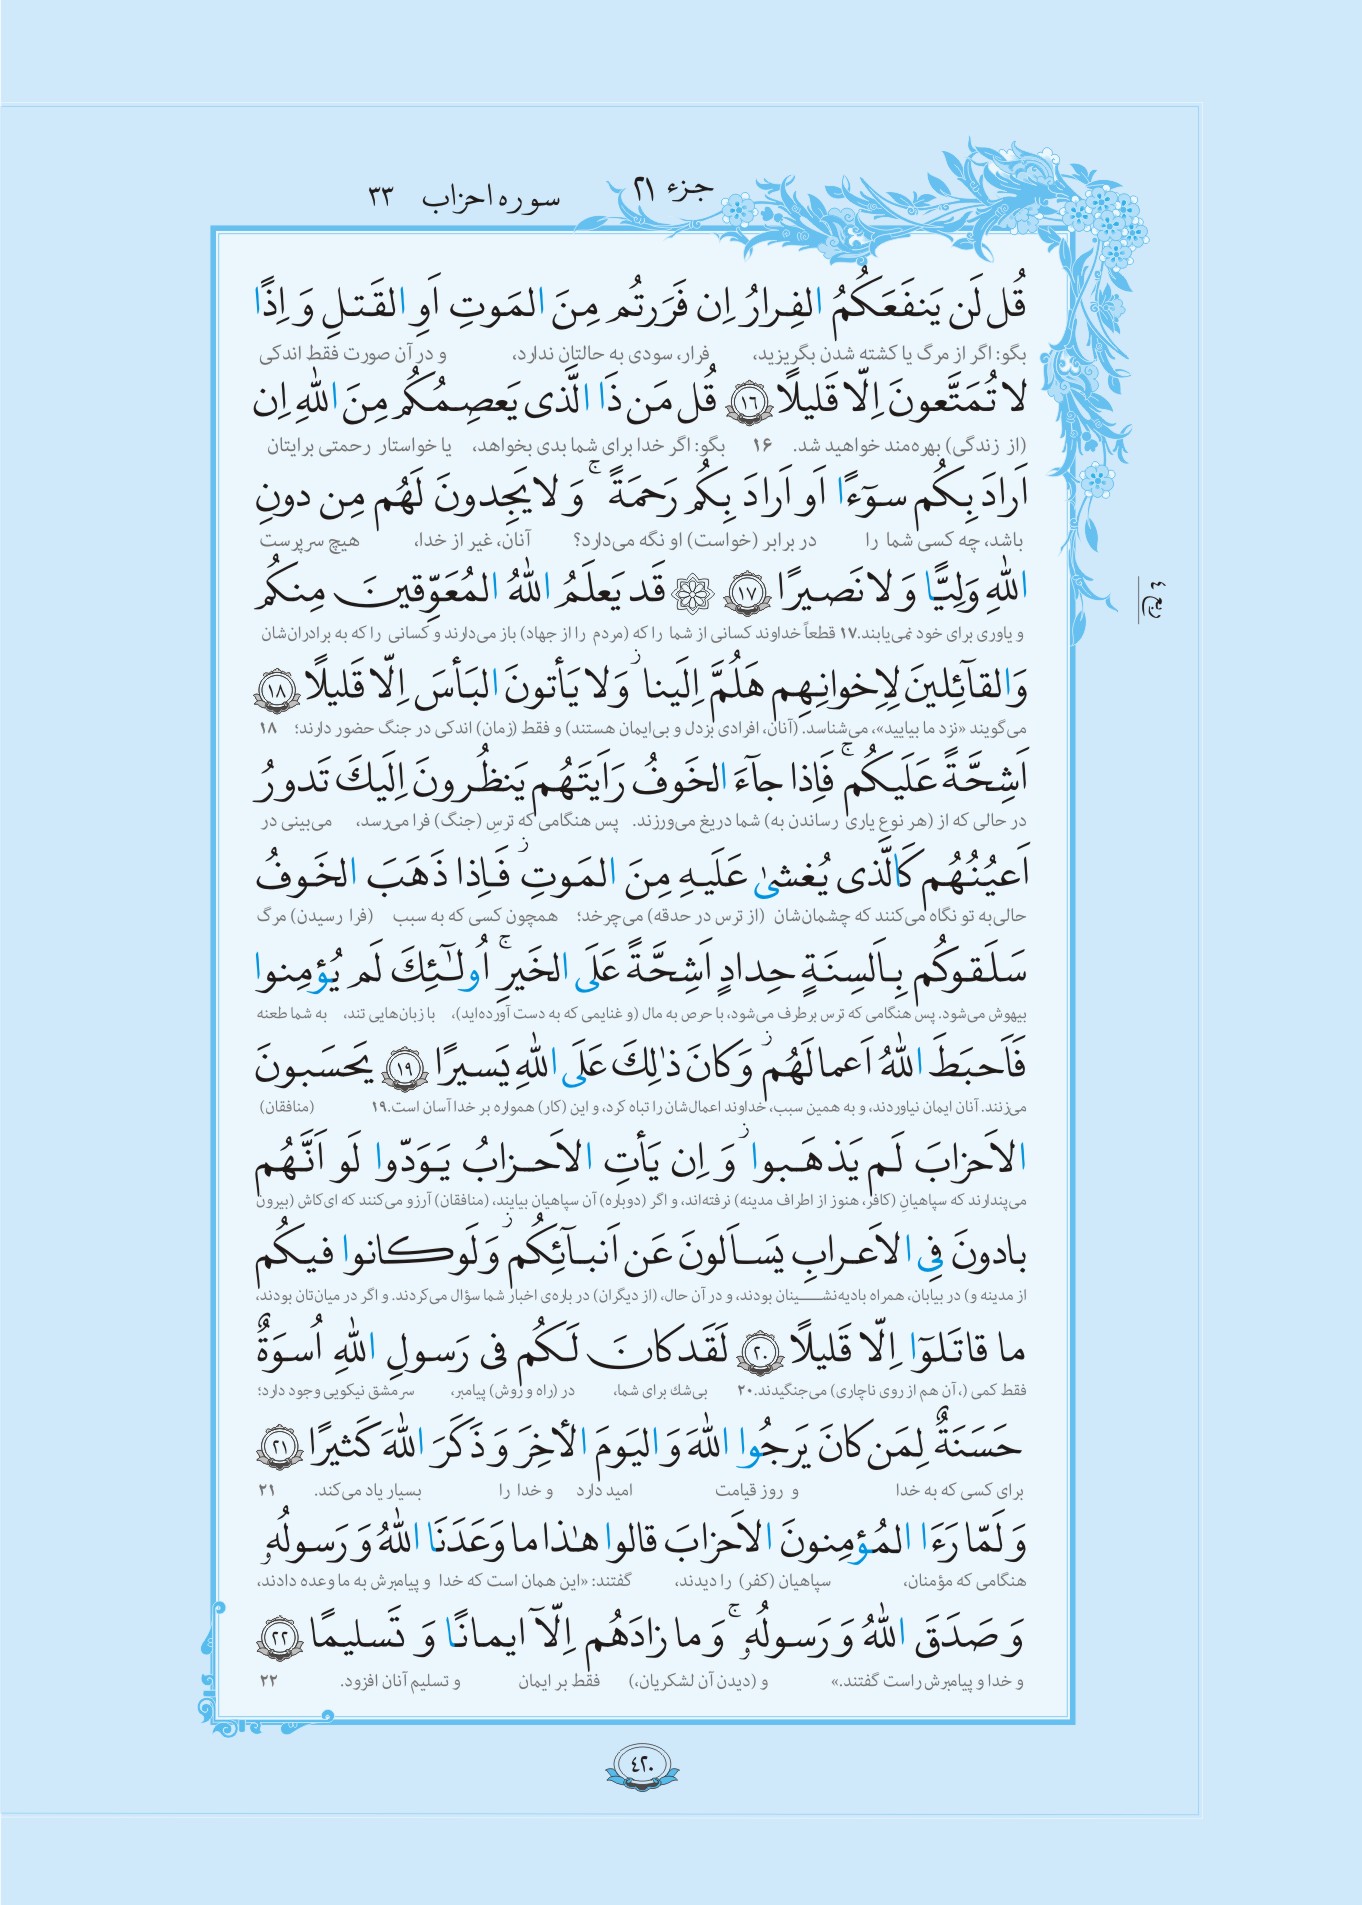 جزء ۲۱
سوره احزاب ۳۳
قُل لَن يَنفَعَكُمُ الفِرارُ اِن فَرَرتُم مِنَ المَوتِ اَوِ القَتلِ وَ اِذًا
بگو: اگر از مرگ یا کشته شدن بگریزید، فرار، سودی به حالتان ندارد، و در آن صورت فقط اندکی
لا تُمَتَّعونَ اِلّا قَليلًا ۱۶ قُل مَن ذَا الَّذى يَعصِمُكُم مِنَ اللهِ اِن
(از زندگی) بهره‌مند خواهید شد. ۱۶ بگو: اگر خدا برای شما بدی بخواهد، یا خواستار رحمتی برایتان
اَرادَ بِكُم سوٓءًا اَو اَرادَ بِكُم رَحمَةً ۚ وَ لا يَجِدونَ لَهُم مِن دونِ
باشد، چه کسی شما را در برابر (خواست) او نگه می‌دارد؟ آنان، غیر از خدا، هیچ سرپرست
اللهِ وَلِيًّا وَ لا نَصيرًا ۱۷ قَد يَعلَمُ اللهُ المُعَوِّقينَ مِنكُم
و یاوری برای خود نمی‌یابند.۱۷ قطعاً خداوند کسانی از شما را که (مردم را از جهاد) باز می‌دارند و کسانی را که به برادران‌شان
وَالقآئِلينَ لِاِخوانِهِم هَلُمَّ اِلَينا ۖ وَلا يَأتونَ البَأسَ اِلّا قَليلًا ۱۸
می‌گویند «نزد ما بیایید»، می‌شناسد. (آنان، افرادی بزدل و بی‌ایمان هستند) و فقط (زمان) اندکی در جنگ حضور دارند؛ ۱۸
اَشِحَّةً عَلَيكُم ۚ فَاِذا جآءَ الخَوفُ رَاَيتَهُم يَنظُرونَ اِلَيكَ تَدورُ
در حالی که از (هر نوع یاری رساندن به) شما دریغ می‌ورزند. پس هنگامی که ترسِ (جنگ) فرا می‌رسد، می‌بینی در
اَعيُنُهُم كَالَّذى يُغشىٰ عَلَيهِ مِنَ المَوتِ ۖ فَاِذا ذَهَبَ الخَوفُ
حالی‌به تو نگاه می‌کنند که چشمان‌شان (از ترس در حدقه) می‌چرخد؛ همچون کسی که به سبب (فرا رسیدن) مرگ
سَلَقوكُم بِاَلسِنَةٍ حِدادٍ اَشِحَّةً عَلَى الخَيرِ ۚ اُولـٰٓئِكَ لَم يُؤمِنوا
بیهوش می‌شود. پس هنگامی که ترس برطرف می‌شود، با حرص به مال (و غنایمی که به دست آورده‌اید)، با زبان‌هایی تند، به شما طعنه
فَاَحبَطَ اللهُ اَعمالَهُم ۖ وَ كانَ ذٰلِكَ عَلَى اللهِ يَسيرًا ۱۹ يَحسَبونَ
می‌زنند. آنان ایمان نیاوردند، و به همین سبب، خداوند اعمال‌شان را تباه کرد، و این (کار) همواره بر خدا آسان است.۱۹ (منافقان)
الاَحزابَ لَم يَذهَبوا ۖ وَ اِن يَأتِ الاَحزابُ يَوَدّوا لَو اَنَّهُم
می‌پندارند که سپاهیانِ (کافر، هنوز از اطراف مدینه) نرفته‌اند، و اگر (دوباره) آن سپاهیان بیایند، (منافقان) آرزو می‌کنند که ای‌کاش (بیرون
بادونَ فِى الاَعرابِ يَسـاَلونَ عَن اَنبآئِكُم ۖ وَ لَو كانوا فيكُم
از مدینه و) در بیابان، همراه بادیه‌نشینان بودند، و در آن حال، (از دیگران) در باره‌ی اخبار شما سؤال می‌کردند. و اگر در میان‌تان بودند،
ما قاتَلوٓا اِلّا قَليلًا ۲۰ لَقَد كانَ لَكُم فى رَسولِ اللهِ اُسوَةٌ
فقط کمی (، آن هم از روی ناچاری) می‌جنگیدند.۲۰ بی‌شك برای شما، در (راه و روش) پیامبر، سرمشق نیکویی وجود دارد؛
حَسَنَةٌ لِمَن كانَ يَرجُوا اللهَ وَ اليَومَ الأخِرَ وَ ذَكَرَ اللهَ كَثيرًا ۲۱
برای کسی که به خدا و روز قیامت امید دارد و خدا را بسیار یاد می‌کند. ۲۱
وَ لَمّا رَءَا المُؤمِنونَ الاَحزابَ قالوا هـٰذا ما وَعَدَنَا اللهُ وَ رَسولُهُۥ
هنگامی که مؤمنان، سپاهیان (کفر) را دیدند، گفتند: «این همان است که خدا و پیامبرش به ما وعده دادند،
وَ صَدَقَ اللهُ وَ رَسولُهُۥ ۚ وَ ما زادَهُم اِلّآ ايمانًا وَ تَسليمًا ۲۲
و خدا و پیامبرش راست گفتند.» و (دیدن آن لشکریان،) فقط بر ایمان و تسلیم آنان افزود. ۲۲
ربع ٤
٤٢٠